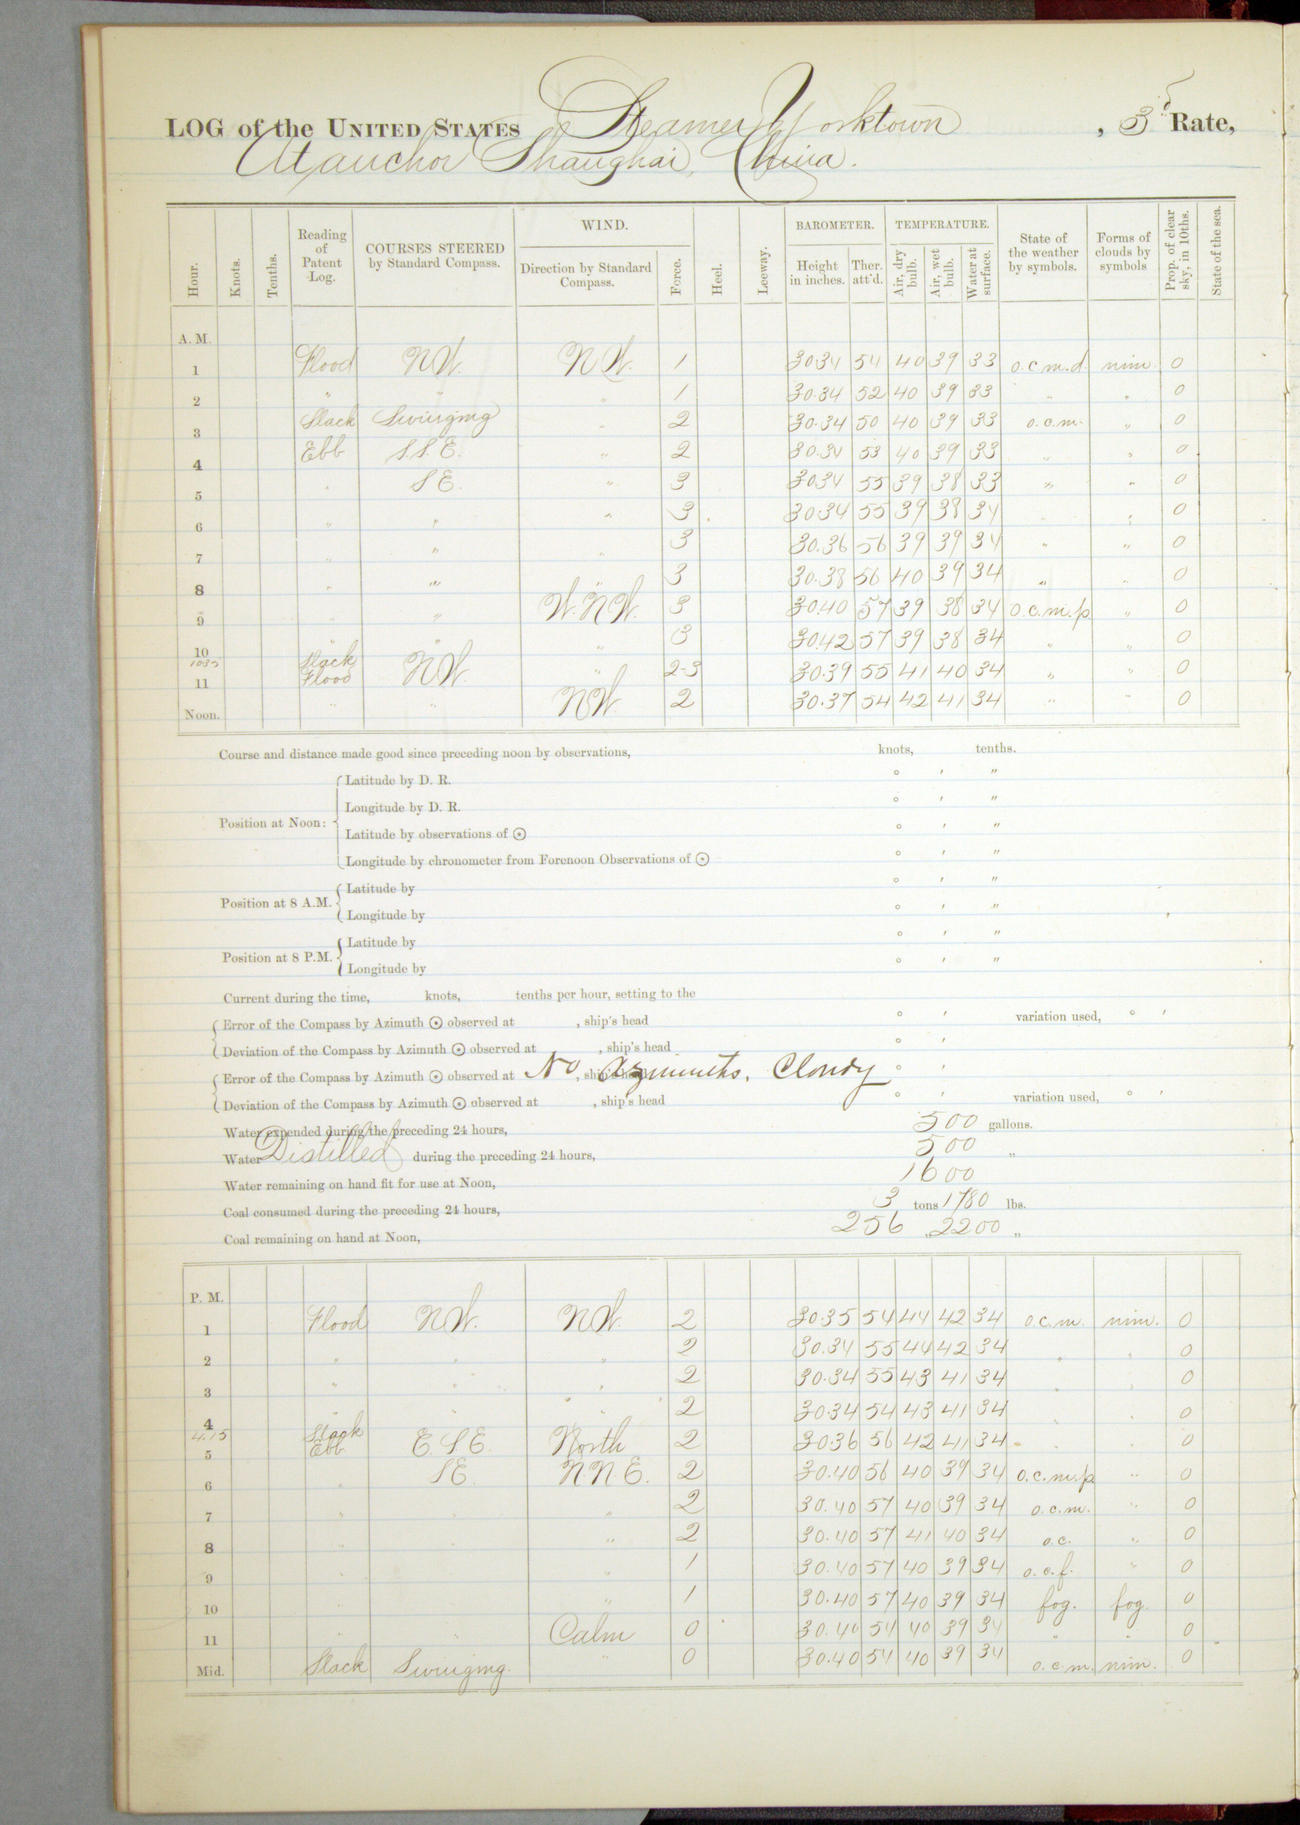 LOG of the UNITED STATES Steamer Yorktown, 3d Rate,
At anchor Shanghai, China.
Hour. Knots. Tenths. Reading of Patent Log. COURSES STEERED by Standard Compass. WIND. Direction by Standard Compass. Force. Heel. Leeway. BAROMETER. Height in inches. Ther. att'd. TEMPERATURE. Air, dry bulb. Air, wet bulb. Water at surface. State of the weather by symbols. Forms of clouds by symbols Prop. of clear sky, in 10ths. State of the sea.
A. M.
1 Flood NW. NW. 1 30.34 54 40 39 33 o.c.m.d. nim. 0
2 " " " 1 30.34 52 40 39 33 " " 0
3 Slack Swinging " 2 30.34 50 40 39 33 o.c.m. " 0
4 Ebb S.S.E. " 2 30.34 53 40 39 33 " " 0
5 " SE. " 3 30.34 55 39 38 33 " " 0
6 " " " 3 30.34 55 39 38 34 " " 0
7 " " " 3 30.36 56 39 39 34 " " 0
8 " " " 3 30.38 56 40 39 34 " " 0
9 " " W.NW. 3 30.40 57 39 38 34 o.c.m.p " 0
10 " " " 3 30.42 57 39 38 34 " " 0
Slack
11 Flood NW. " 2-3 30.39 55 41 40 34 " " 0
Noon. " " NW 2 30.37 54 42 41 34 " " 0
Course and distance made good since preceding noon by observations, knots, tenths.
Position at Noon: Latitude by D. R. ° ' "
Longitude by D. R. ° ' "
Latitude by observations of ☉ ° ' "
Longitude by chronometer from Forenoon Observations of ☉ ° ' "
Position at 8 A.M. Latitude by ° ' "
Longitude by ° ' "
Position at 8 P.M. Latitude by ° ' "
Longitude by ° ' "
Current during the time, knots, tenths per hour, setting to the
Error of the Compass by Azimuth ☉ observed at , ship's head ° ' variation used, ° '
Deviation of the Compass by Azimuth ☉ observed at , ship's head ° '
Error of the Compass by Azimuth ☉ observed at No Azimuths. Cloudy , ship's head ° '
Deviation of the Compass by Azimuth ☉ observed at , ship's head ° ' variation used, ° '
Water expended during the preceding 24 hours, 500 gallons.
Water Distilled during the preceding 24 hours, 500 "
Water remaining on hand fit for use at Noon, 1600
Coal consumed during the preceding 24 hours, 3 tons 1780 lbs.
Coal remaining on hand at Noon, 256 " 2200 "
P. M.
1 Flood NW. NW. 2 30.35 54 44 42 34 o.c.m. nim. 0
2 " " " 2 30.34 55 44 42 34 " " 0
3 " " " 2 30.34 55 43 41 34 " " 0
4 " " " 2 30.34 54 43 41 34 " " 0
4.15 Slack
5 Ebb E.SE. North 2 30.36 56 42 41 34 " " 0
6 " SE. N.N.E. 2 30.40 56 40 39 34 o.c.m.p " 0
7 " " " 2 30.40 57 40 39 34 o.c.m. " 0
8 " " " 2 30.40 57 41 40 34 o.c. " 0
9 " " " 1 30.40 57 40 39 34 o.c.f. " 0
10 " " " 1 30.40 57 40 39 34 fog. fog. 0
11 " " Calm 0 30.40 54 40 39 34 " " 0
Mid. Slack Swinging. " 0 30.40 54 40 39 34 o.c.m. nim. 0